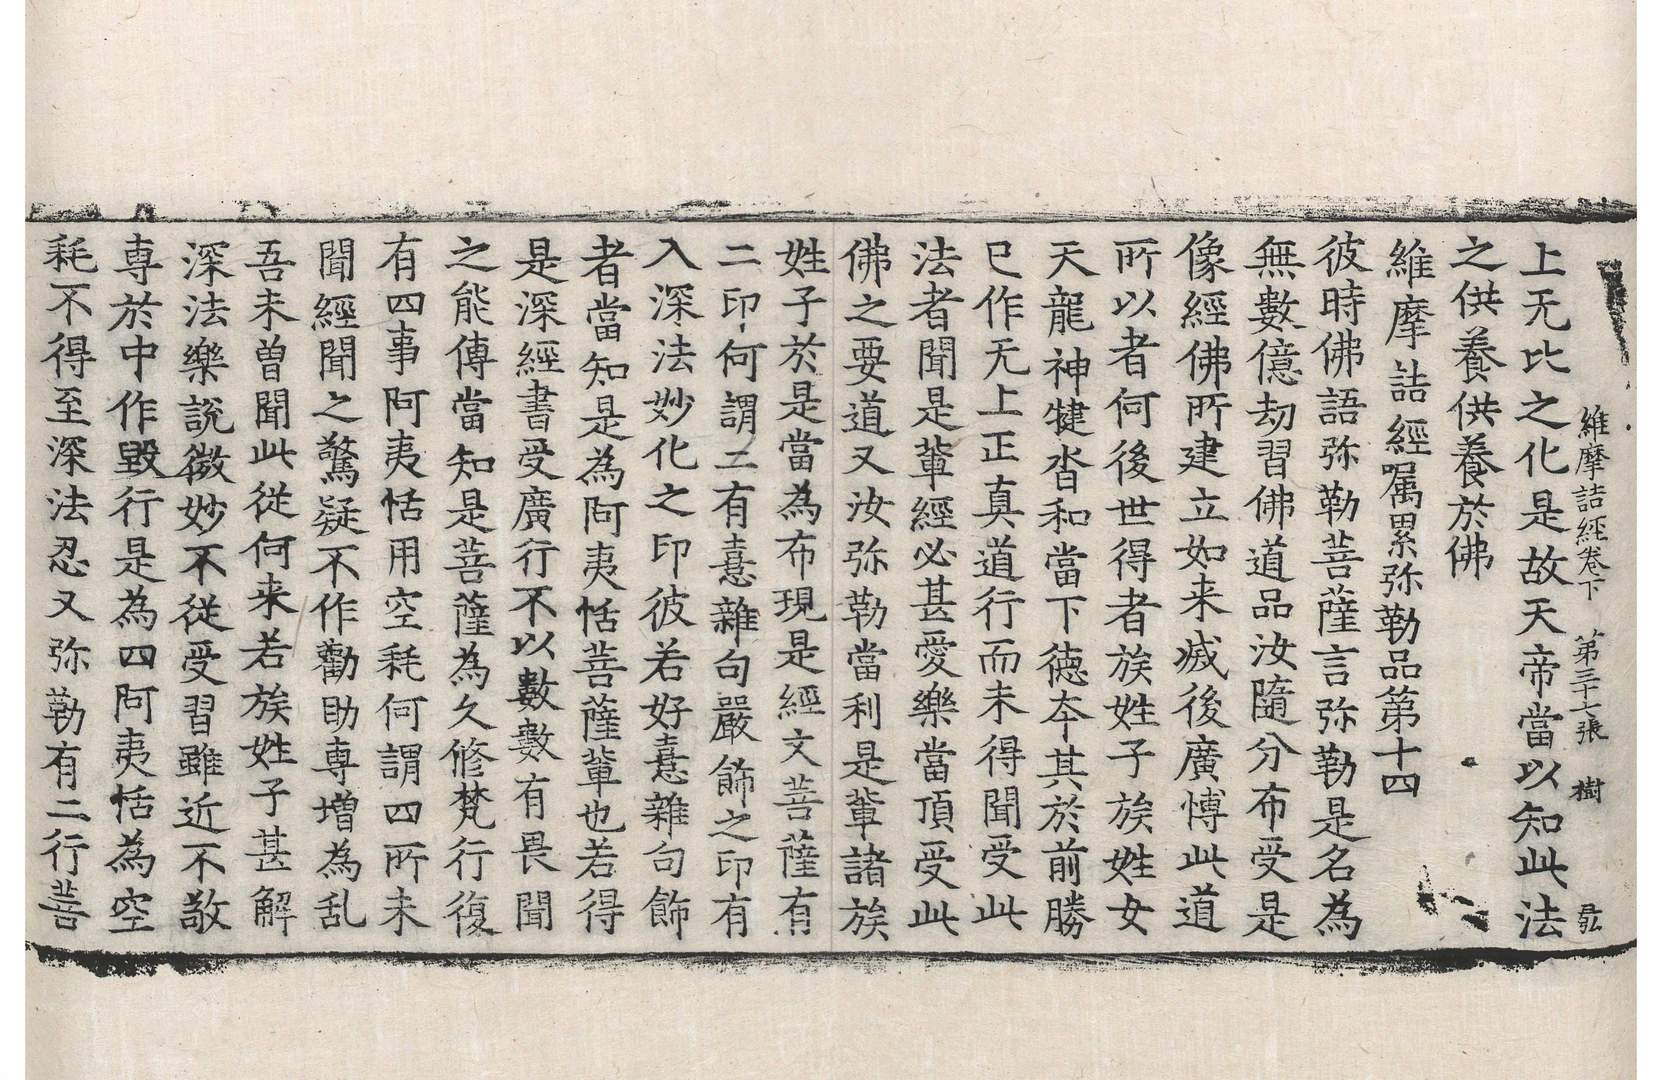 維摩詰經卷下 第三十七張 樹
上无比之化是故天帝當以知此法
之供養供養於佛
維摩詰經嘱累弥勒品第十四
彼時佛語弥勒菩薩言弥勒是名為
無數億劫習佛道品汝隨分布受是
像經佛所建立如来滅後廣博此道
所以者何後世得者族姓子族姓女
天龍神犍沓和當下德本其於前勝
已作无上正真道行而未得聞受此
法者聞是輩經必甚愛樂當頂受此
佛之要道又汝弥勒當利是輩諸族
姓子於是當為布現是經文菩薩有
二印何謂二有憙雜句嚴飾之印有
入深法妙化之印彼若好憙雜句飾
者當知是為阿夷恬菩薩輩也若得
是深經書受廣行不以數數有畏聞
之能傳當知是菩薩為久修梵行復
有四事阿夷恬用空秏何謂四所未
聞經聞之驚疑不作勸助専增為乱
吾未曾聞此從何来若族姓子甚解
深法樂説微妙不從受習雖近不敬
専於中作毀行是為四阿夷恬為空
秏不得至深法忍又弥勒有二行菩